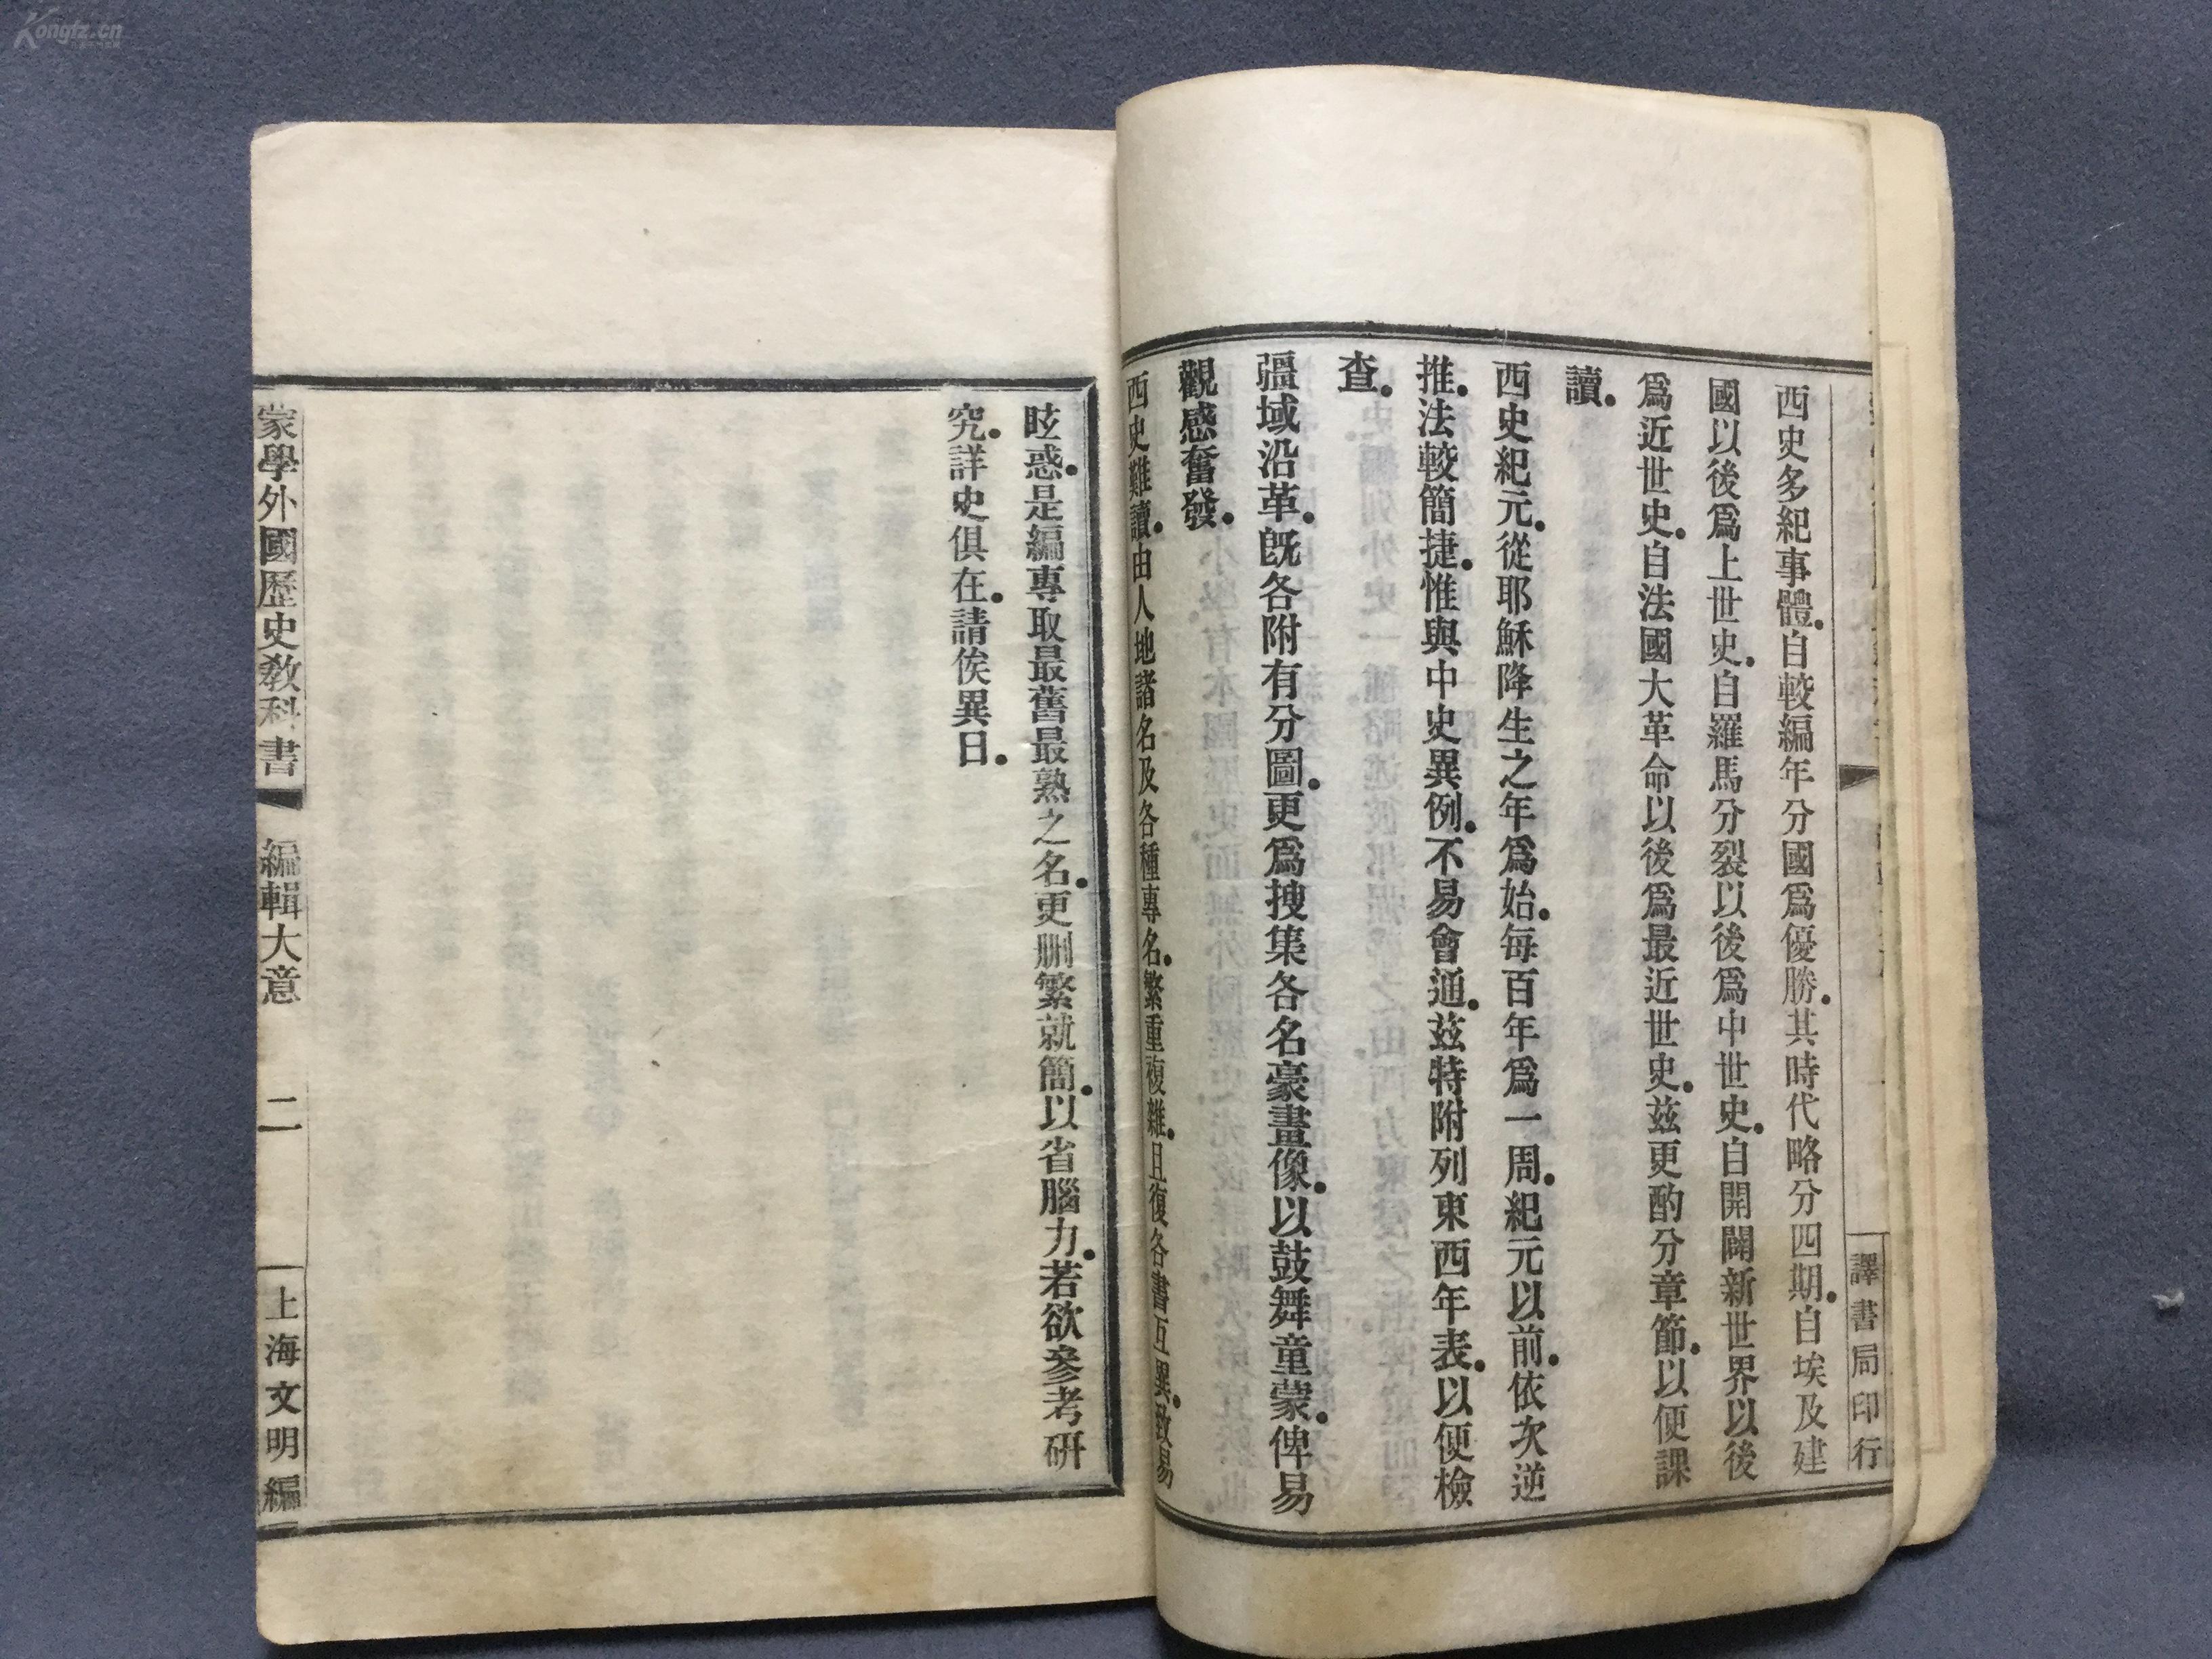 西史多紀事體.自較編年分國爲優勝.其時代略分四期.自埃及建
國以後爲上世史.自羅馬分裂以後爲中世史.自開闢新世界以後
爲近世史.自法國大革命以後爲最近世史.茲更酌分章節.以便課
讀.
西史紀元.從耶穌降生之年爲始.每百年爲一周.紀元以前.依次逆
推.法較簡捷.惟與中史異例.不易會通.茲特附列東西年表.以便檢
查.
疆域沿革.旣各附有分圖.更爲搜集各名豪畫像.以鼓舞童蒙.俾易
觀感奮發.
西史難讀.由人地諸名及各種專名.繁重複雜.且復各書互異.致易
眩惑.是編專取最舊最熟之名.更删繁就簡.以省腦力.若欲參考研
究.詳史俱在.請俟異日.
譯書局印行
蒙學外國歷史敎科書 編輯大意 二 上海文明編
Kongfz.cn